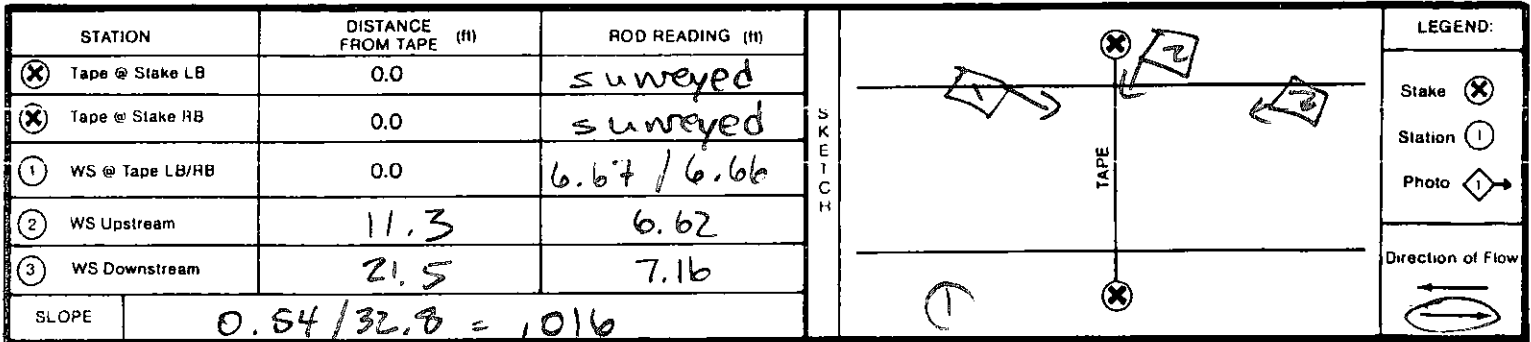 STATION DISTANCE FROM TAPE (ft) ROD READING (ft)
Tape @ Stake LB 0.0 surveyed
Tape @ Stake RB 0.0 surveyed
1 WS @ Tape LB/RB 0.0 6.67 / 6.66
2 WS Upstream 11.3 6.62
3 WS Downstream 21.5 7.16
SLOPE 0.54/32.8 = .016
SKETCH
1 2
TAPE
1
LEGEND:
Stake
Station 1
Photo 1
Direction of Flow